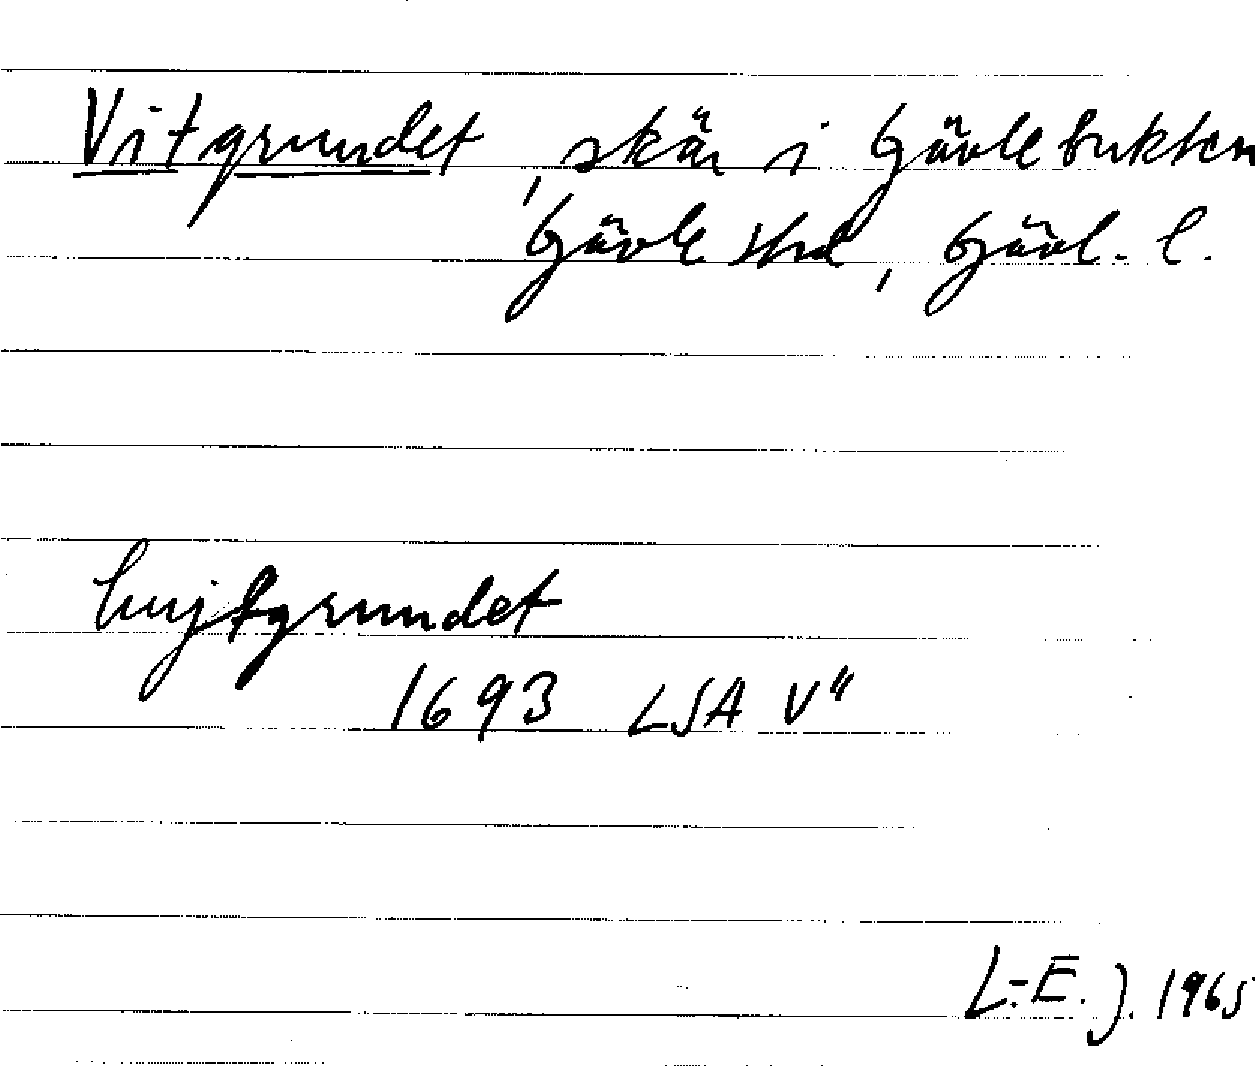 Vitgrundet, skär i Gävlebukten
Gävle stad, Gävl. l.
hujtgrundet
1693 LSA V"
L-E. J. 1965